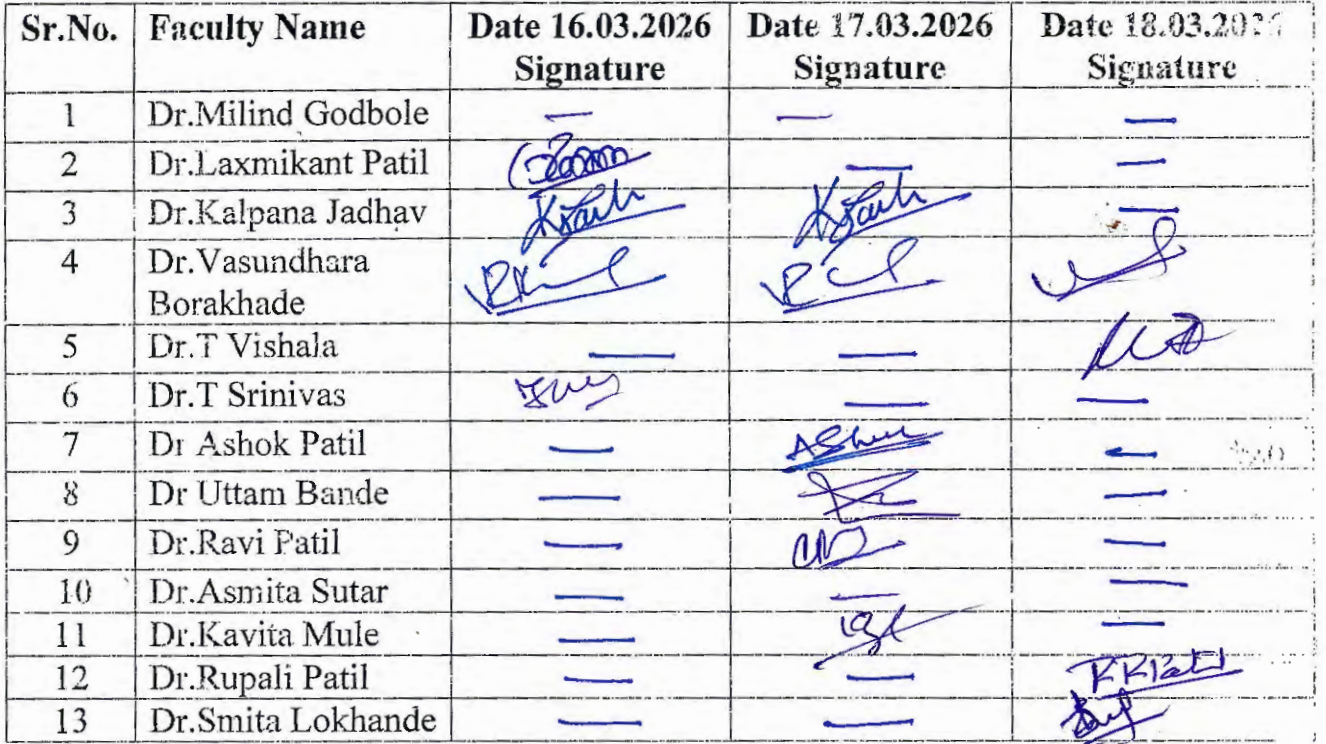 Sr.No. Faculty Name Date 16.03.2026 Date 17.03.2026 Date 18.03.2026
Signature Signature Signature
1 Dr.Milind Godbole — — —
2 Dr.Laxmikant Patil — —
3 Dr.Kalpana Jadhav —
4 Dr.Vasundhara
Borakhade
5 Dr.T Vishala — —
6 Dr.T Srinivas — —
7 Dr Ashok Patil — —
8 Dr Uttam Bande — —
9 Dr.Ravi Patil — —
10 Dr.Asmita Sutar — — —
11 Dr.Kavita Mule — —
12 Dr.Rupali Patil — — RRPatil
13 Dr.Smita Lokhande — —